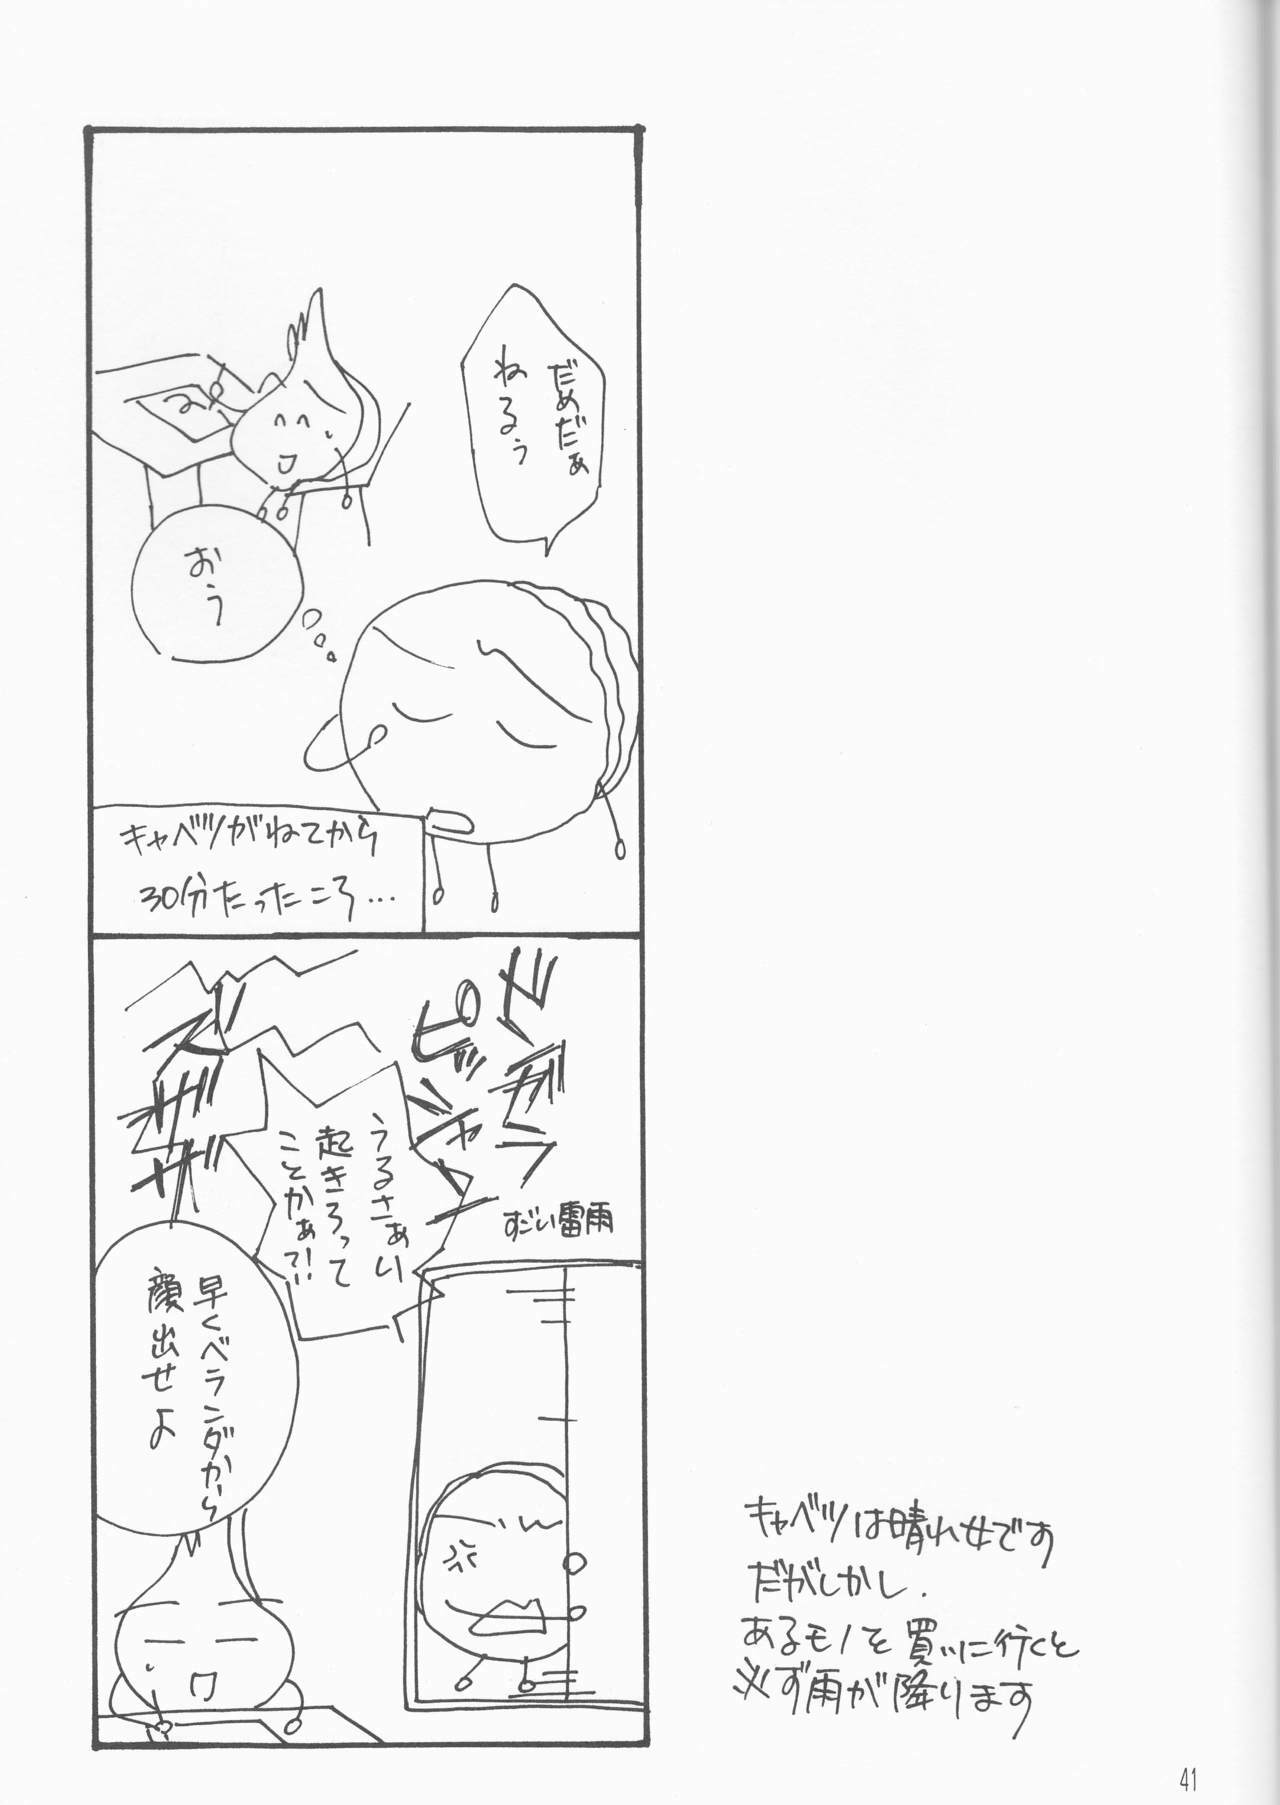 だめだぁ
ねるぅ
おう
キャベツがねてから
30分たったころ…
ドデラ
ピッシャー
ズザザ
すごい雷雨
うるさぁい
起きろって
ことかぁて!!
早くベランダから
顔出せよ
キャベツは晴れ女です
だがしかし.
あるモノを買いに行くと
必ず雨が降ります
41